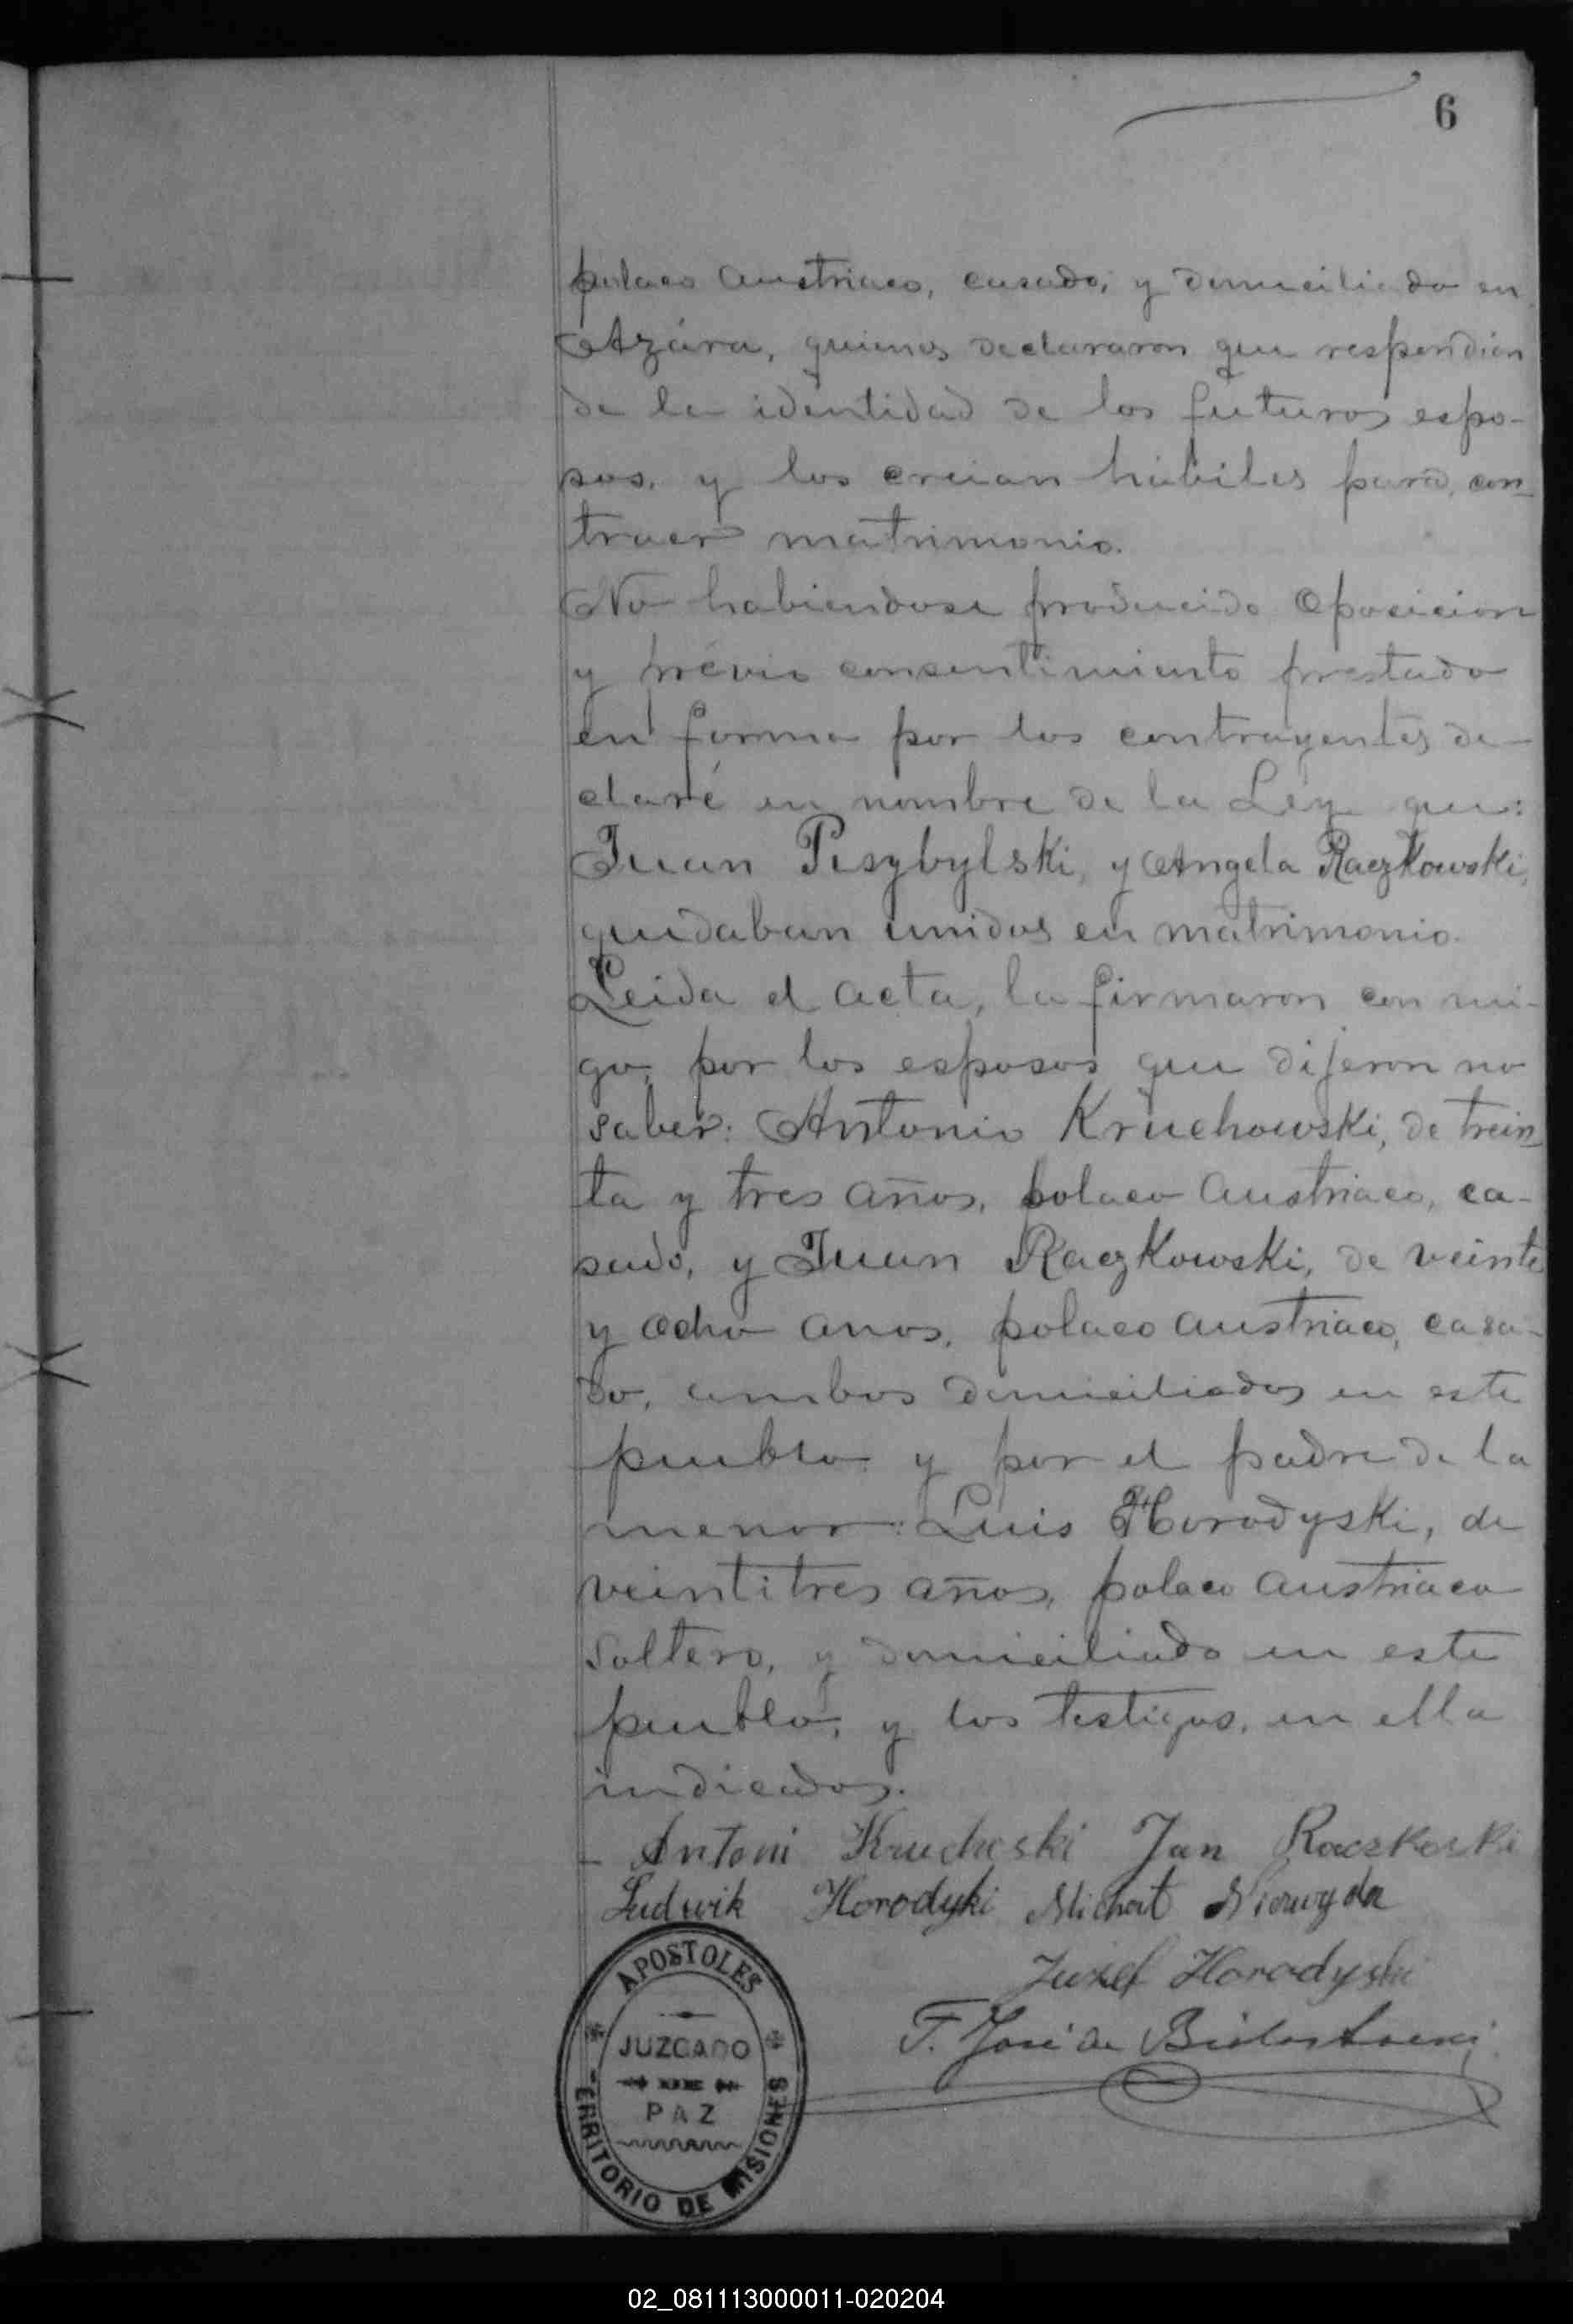 6
polaco austriaco, casado, y domiciliado en
Azára, quienes declararon que respondian
de la identidad de los futuros espo-
sos, y los creian hábiles para con-
traer matrimonio.
No habiendose producido oposicion
y prévio consentimiento prestado
en forma por los contrayentes de-
claré en nombre de la Ley que:
Juan Pesybylski, y Angela Raczkowski,
quedaban unidos en matrimonio.
Leida el acta, la firmaron con mi-
go, por los esposos que dijeron no
saber: Antonio Kruchowski, de trein-
ta y tres años, polaco austriaco, ca-
sado, y Juan Raczkowski, de veinte
y ocho anos, polaco austriaco, casa-
do, ambos domiciliados en este
pueblo y por el padre de la
menor: Luis Horodyski, de
veintitres años, polaco austriaco
soltero, y domiciliado en este
pueblo, y los testigos, en ella
indicados.
Antoni Krucheski Jan Raczkoski
Ludwik Horodyki Michat
Juzef Horodyski
F. José de
APOSTOLES
JUZGADO
DE
PAZ
TERRITORIO DE MISIONES
02_081113000011-020204